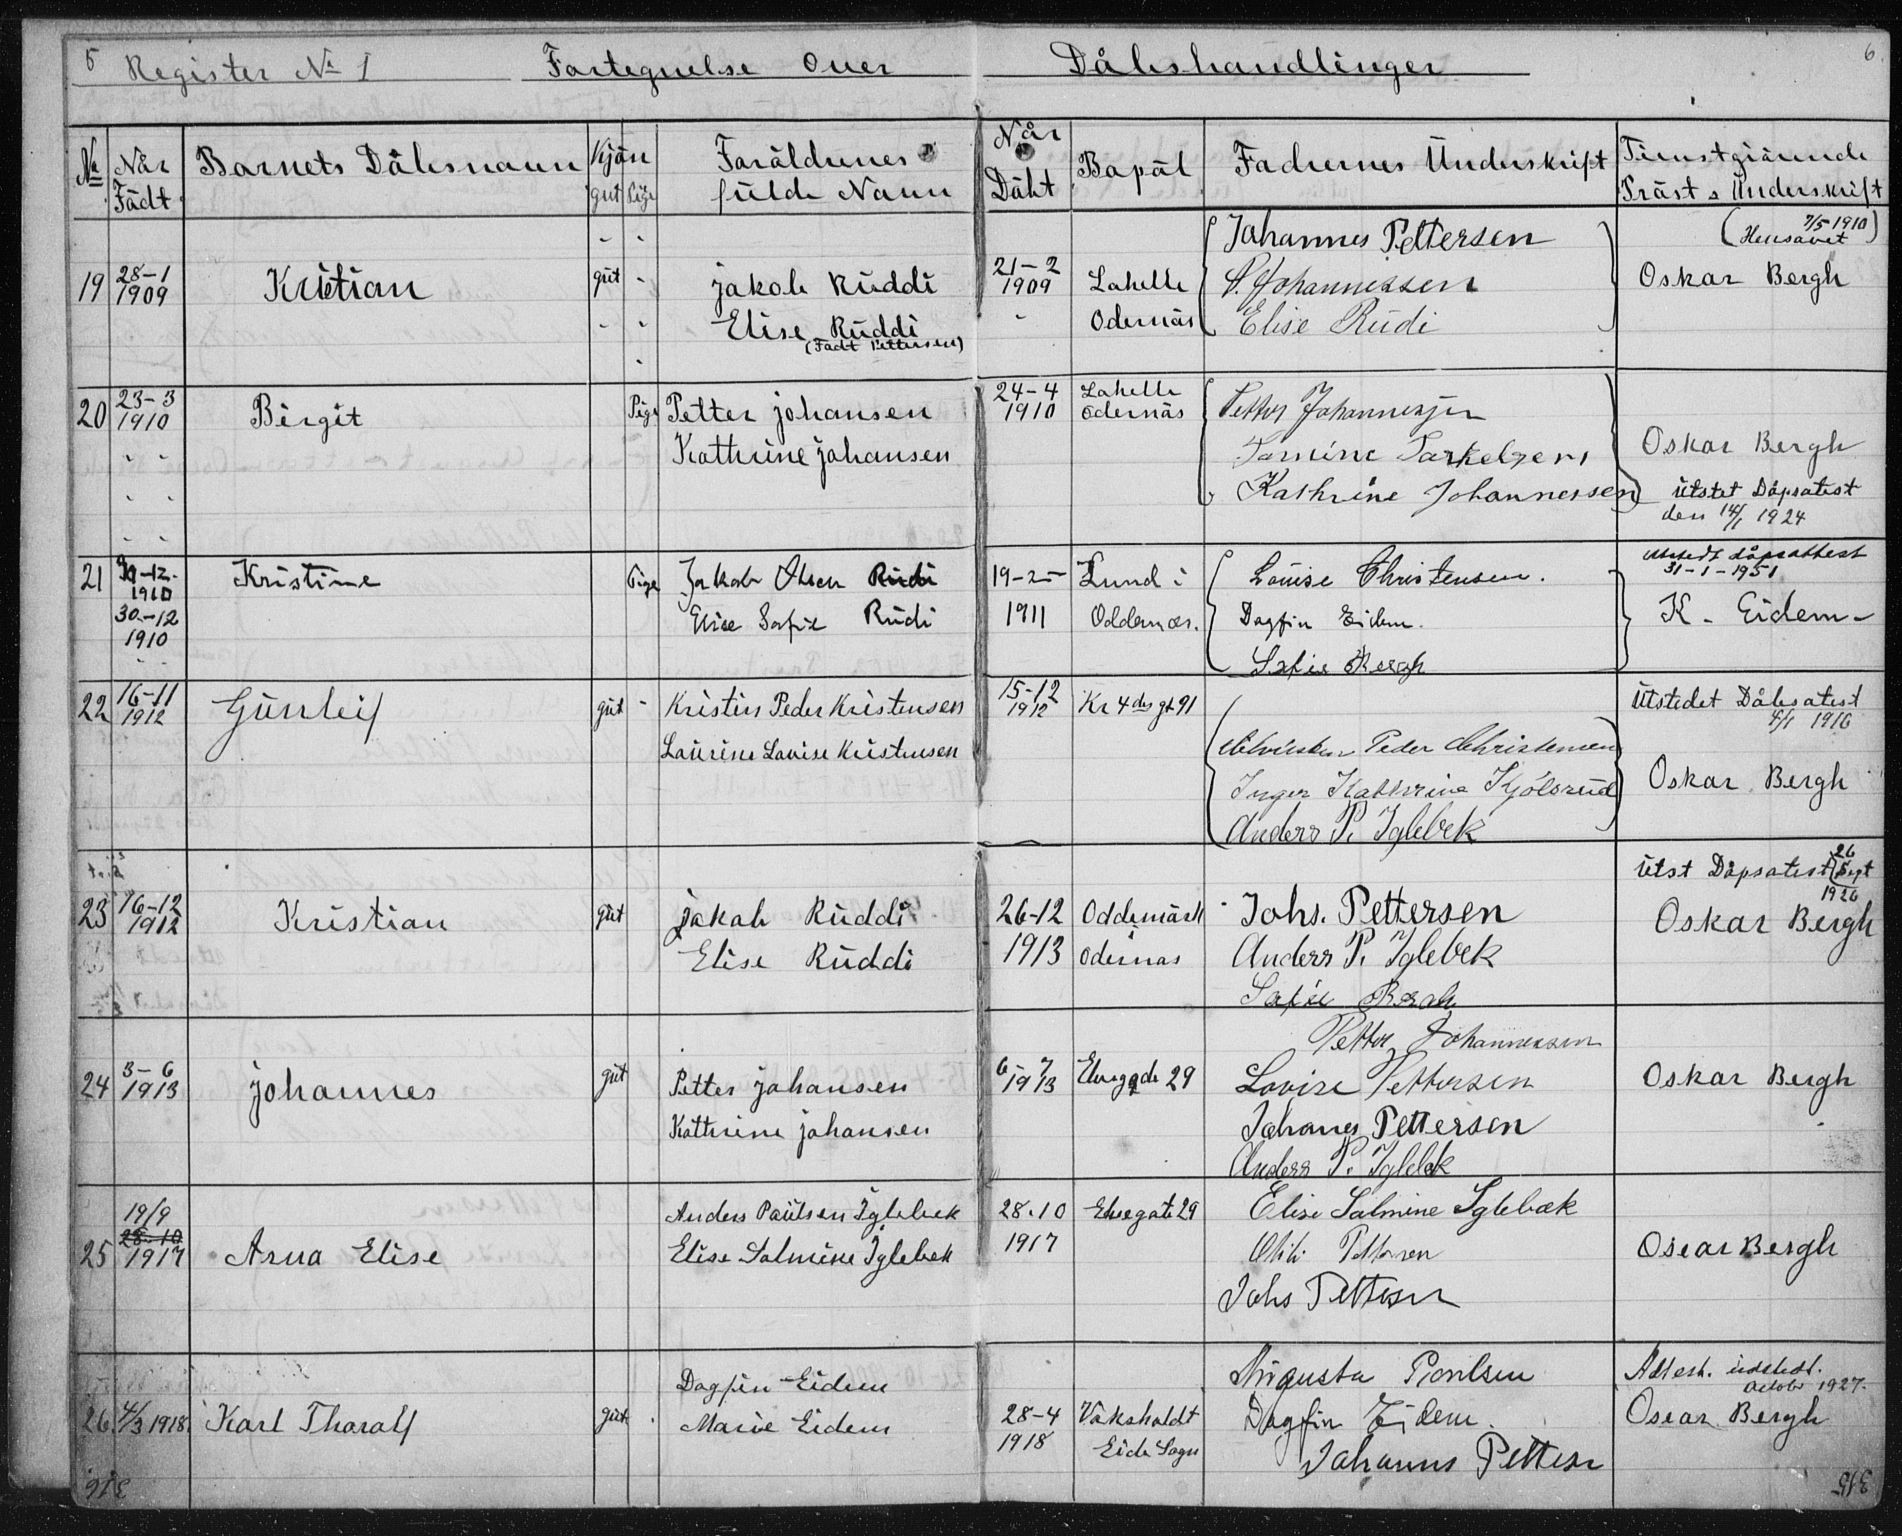 5 Register № 1 Fortegnelse Over Dåbshandlinger 6
№ Når Födt Barnets Dåbsnavn Kjön gut Pige Foräldrenes fulde Navn Når Däbt Bopäl Fadrernes Underskrift Tienstgiörende Präst s Underskrift
Johannes Pettersen 7/5 1910
19 28-1 1909 Kristian gut jakob Ruddi 21-2 1909 Lahelle Johannessen Oskar Bergh
Elise Ruddi Odernäs Elise Rudi
(Födt Pettersen)
20 23-3 1910 Birgit Pige Petter johansen 24-4 1910 Lahelle Odernäs Petter Johannesjen
Kathrine johansen Tomine Torkelsen Oskar Bergh
Kathrine Johannessen Utstet Dåpsatest
den 14/1 1924
21 1910 30-12 1910 Kristine Pige Jakob Olsen Rudi 19-2- 1911 Lund i Oddernæs. Louise Christensen. utstedt dåpsattest
31-1-1951
Elise Sofie Rudi Dagfin Eidem. K. Eidem-
Sofie Bergh
22 16-11 1912 Gunleif gut Kristin Peder Kristensen 15-12 1912 Kr 4 des gt 91 Utstedet Dåbsatest
1916
Laurine Lovise Kristensen Christen Peder Christensen
Inger Kathrine Kjölsrud Oskar Bergh
Anders P. Iglebek
Utst Dåpsatest 26 Sept
1926
23 16-12 1912 Kristian gut jakob Ruddi 26-12 1913 Oddemärk Johs. Pettersen Oskar Bergh
Elise Ruddi odernäs Anders P. Iglebek
Sofie Bergh
Petter Johannessen
24 3-6 1913 johannes gut Petter johansen 6-7 1913 Elvegade 29 Lovise Pettersen Oskar Bergh
Kathrine johansen Johanes Pettersen
Anders P. Iglebek
25 19/9 28-10 1917 Arna Elise Anders Paulsen Iglebek 28.10 1917 Elvegate 29 Elise Salmine Iglebæk
Elise Salmine Iglebek Pettersen Oscar Bergh
Johs Pettersen
Dagfin Eidem Augusta Poulsen Attest. udstedt.
October 1927.
26 4/3 1918. Karl Thoralf gut Marie Eidem 28-4 1918 Våksholdt Dagfin Eidem. Oscar Bergh
Eide Sogn Johannes Pettersen
316 315